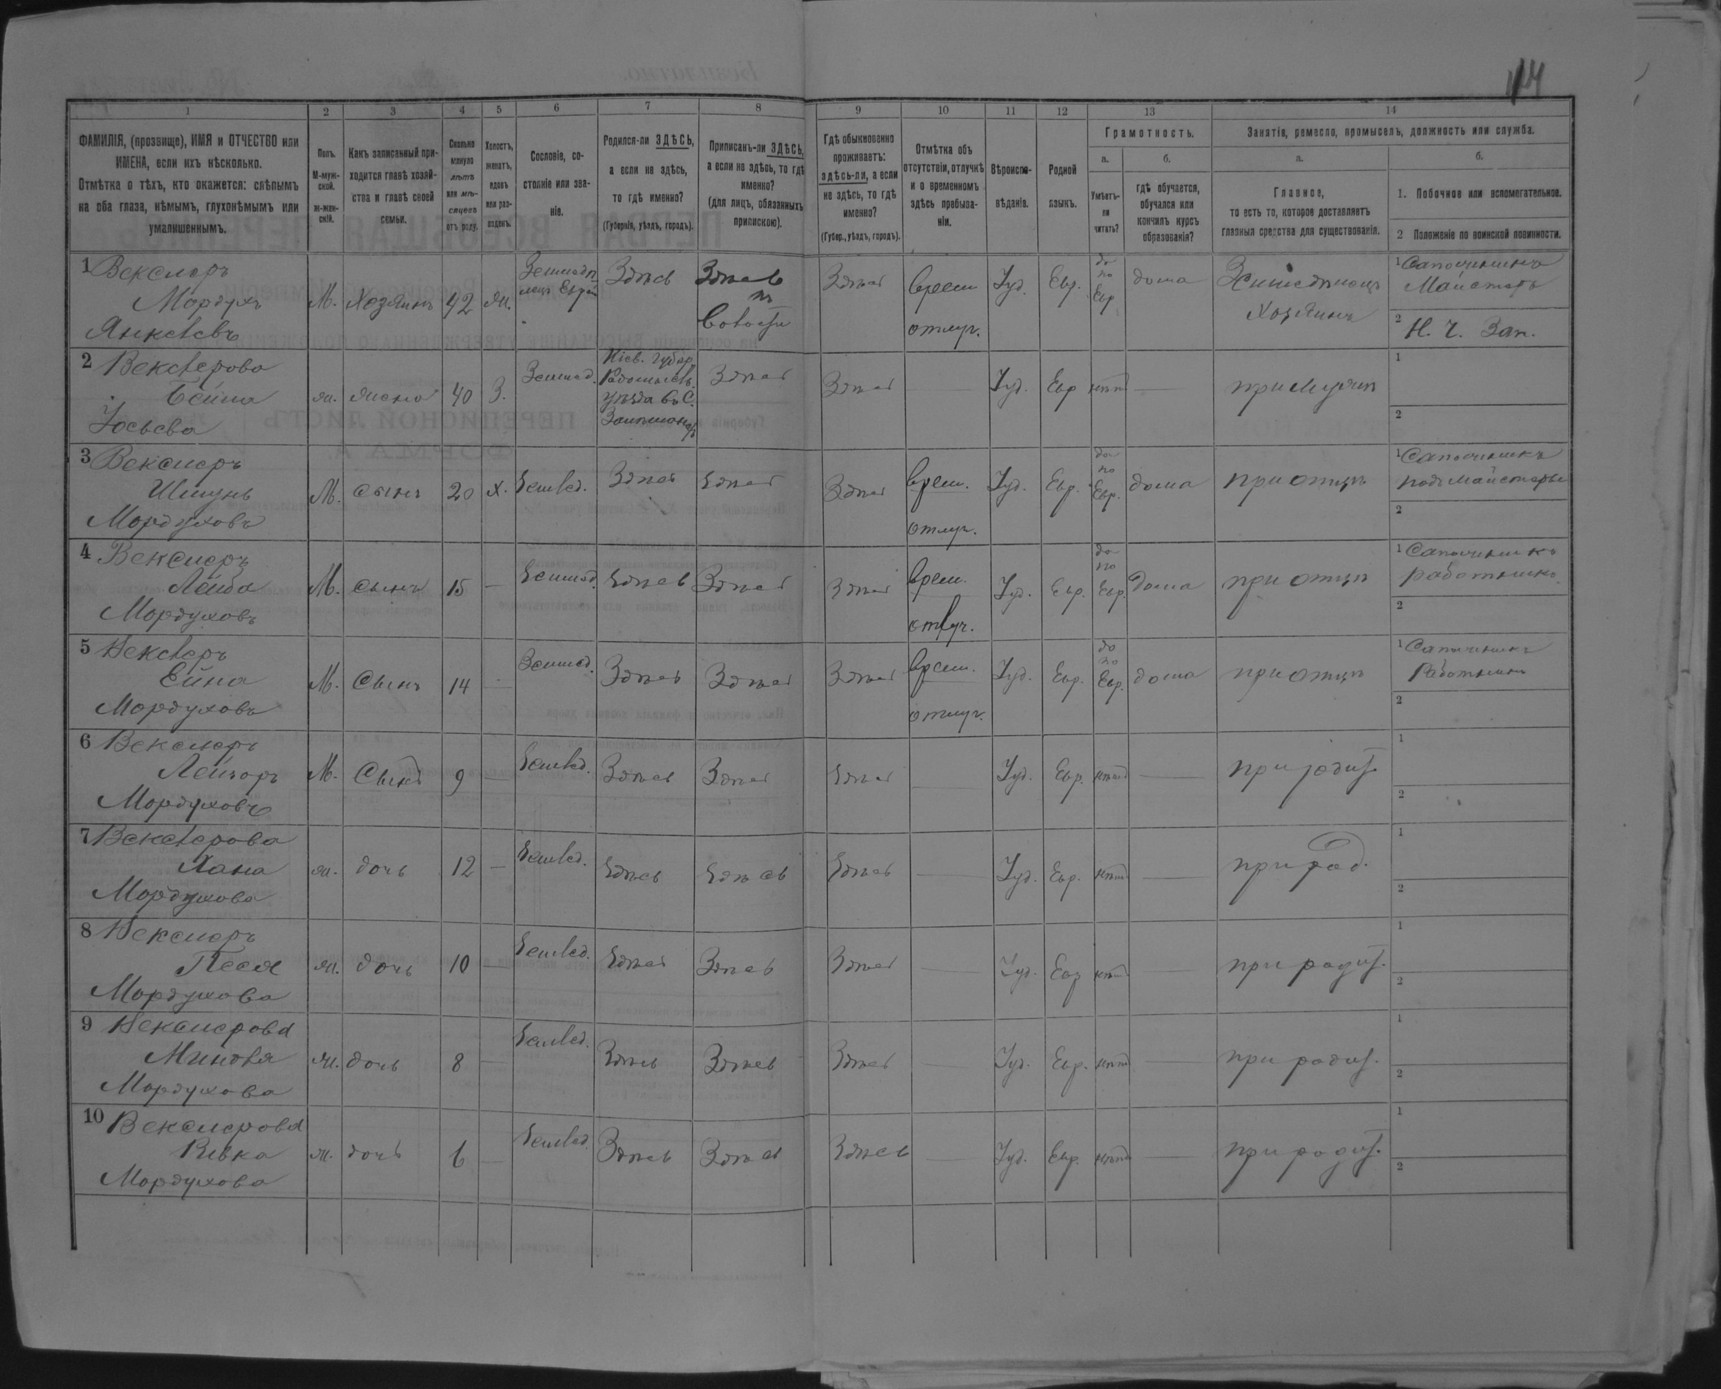 1 2 3 4 5 6 7 8 9 10 11 12 13 14
ФАМИЛІЯ, (прозвище), ИМЯ и ОТЧЕСТВО или
ИМЕНА, если ихъ нѣсколько.
Отмѣтка о тѣхъ, кто окажется: слѣпымъ
на оба глаза, нѣмымъ, глухонѣмымъ или
умалишеннымъ.
Полъ.
М-муж-
ской.
ж-жен-
скій.
Какъ записанный при-
ходится главѣ хозяй-
ства и главѣ своей
семьи.
Сколько
минуло
лѣтъ
или мѣ-
сяцевъ
отъ роду.
Холостъ,
женатъ,
вдовъ
или раз-
веденъ.
Сословіе, со-
стояніе или зва-
ніе.
Родился-ли ЗДѢСЬ,
а если не здѣсь,
то гдѣ именно?
(Губернія, уѣздъ, городъ).
Приписанъ-ли ЗДѢСЬ,
а если не здѣсь, то гдѣ
именно?
(для лицъ, обязанныхъ
припискою).
Гдѣ обыкновенно
проживаетъ:
здѣсь-ли, а если
не здѣсь, то гдѣ
именно?
(Губер., уѣздъ, городъ).
Отмѣтка объ
отсутствіи, отлучкѣ
и о временномъ
здѣсь пребыва-
ніи.
Вѣроиспо-
вѣданіе.
Родной
языкъ.
Грамотность.
а.
Умѣетъ-
ли
читать?
б.
гдѣ обучается,
обучался или
кончилъ курсъ
образованія?
Занятія, ремесло, промыселъ, должность или служба.
а.
Главное,
то есть то, которое доставляетъ
главныя средства для существованія.
б.
1. Побочное или вспомогательное.
2 Положеніе по воинской повинности.
1 Векслеръ
Мордухъ
Янкелевъ
М. Хозяинъ 42 Ж.
Здѣсь
Здѣсь
Здѣсь
Врем
отлуч.
Іуд. Евр.
да
по
Евр
дома
Хозяинъ
1 Сапожникъ
Майстеръ
2 Н. Ч. Зап.
2 Векслерова
Бейла
Іосьева
ж. жена 40 З.
Землед.
Кіев. Губер
Радомысль.
уѣзда въ С.
Здѣсь
Здѣсь
—
Іуд. Евр нѣтъ —
при мужѣ
1
2
3 Векслеръ
Шмунь
Мордуховъ
М. сынъ 20 Х. Землед. Здѣсь Здѣсь
Здѣсь
Врем.
отлуч.
Іуд. Евр.
да
по
Евр.
дома
при отцѣ
1 Сапожникъ
подъмайстеръ
2
4 Векслеръ
Лейба
Мордуховъ
М. сынъ 15 — Землед. Здѣсь Здѣсь
Здѣсь
Врем.
отлуч.
Іуд. Евр.
да
по
Евр.
Дома
при отцѣ
1 Сапожникъ
работникъ
2
5 Векслеръ
Ейна
Мордуховъ
М. Сынъ 14 — Землед. Здѣсь Здѣсь
Здѣсь
Врем.
отлуч.
Іуд. Евр.
да
по
Евр.
дома
при отцѣ
1 Сапожникъ
Работникъ
2
6 Векслеръ
Лейзоръ
Мордуховъ
М. Сынъ 9 — Землед. Здѣсь Здѣсь
Здѣсь — Іуд. Евр. нѣтъ — при родит.
1
2
7 Векслерова
Хана
Мордухова
ж. дочь 12 — Землед. Здѣсь Здѣсь
Здѣсь — Іуд. Евр. нѣтъ — при род.
1
2
8 Векслеръ
Песя
Мордухова
ж. дочь 10 — Землед. Здѣсь Здѣсь
Здѣсь — Іуд. Евр нѣтъ — при родит.
1
2
9 Векслерова
Миндля
Мордухова
ж. дочь 8 — Землед. Здѣсь Здѣсь
Здѣсь — Іуд. Евр. нѣтъ — при родит.
1
2
10 Векслерова
Ривка
Мордухова
ж. дочь 6 — Землед. Здѣсь Здѣсь
Здѣсь — Іуд. Евр. нѣтъ — при родит.
1
2